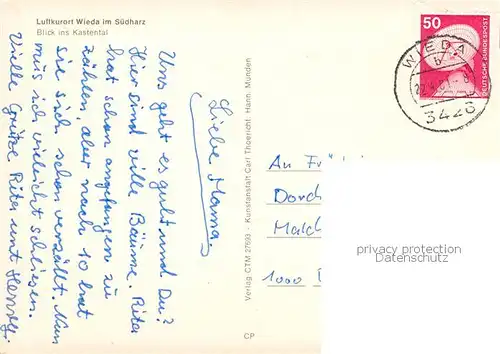 Luftkurort Wieda im Südharz
Blick ins Kastental
Liebe Mama.
Uns geht es gut und Du?
Hier sind ville Bäume. Riter
hat schon angefangen zu
zählen, aber nach 10 hat
sie sich schon verzählt. Nun
mus ich vieleicht schliesen.
Vielle Grütze Riter unt Henry.
Verlag CTM 27693 - Kunstanstalt Carl Thoericht, Hann. Münden
CP
50
DEUTSCHE BUNDESPOST
WIEDA
b
3426
An
Dorch
Malch
1000
privacy protection
Datenschutz